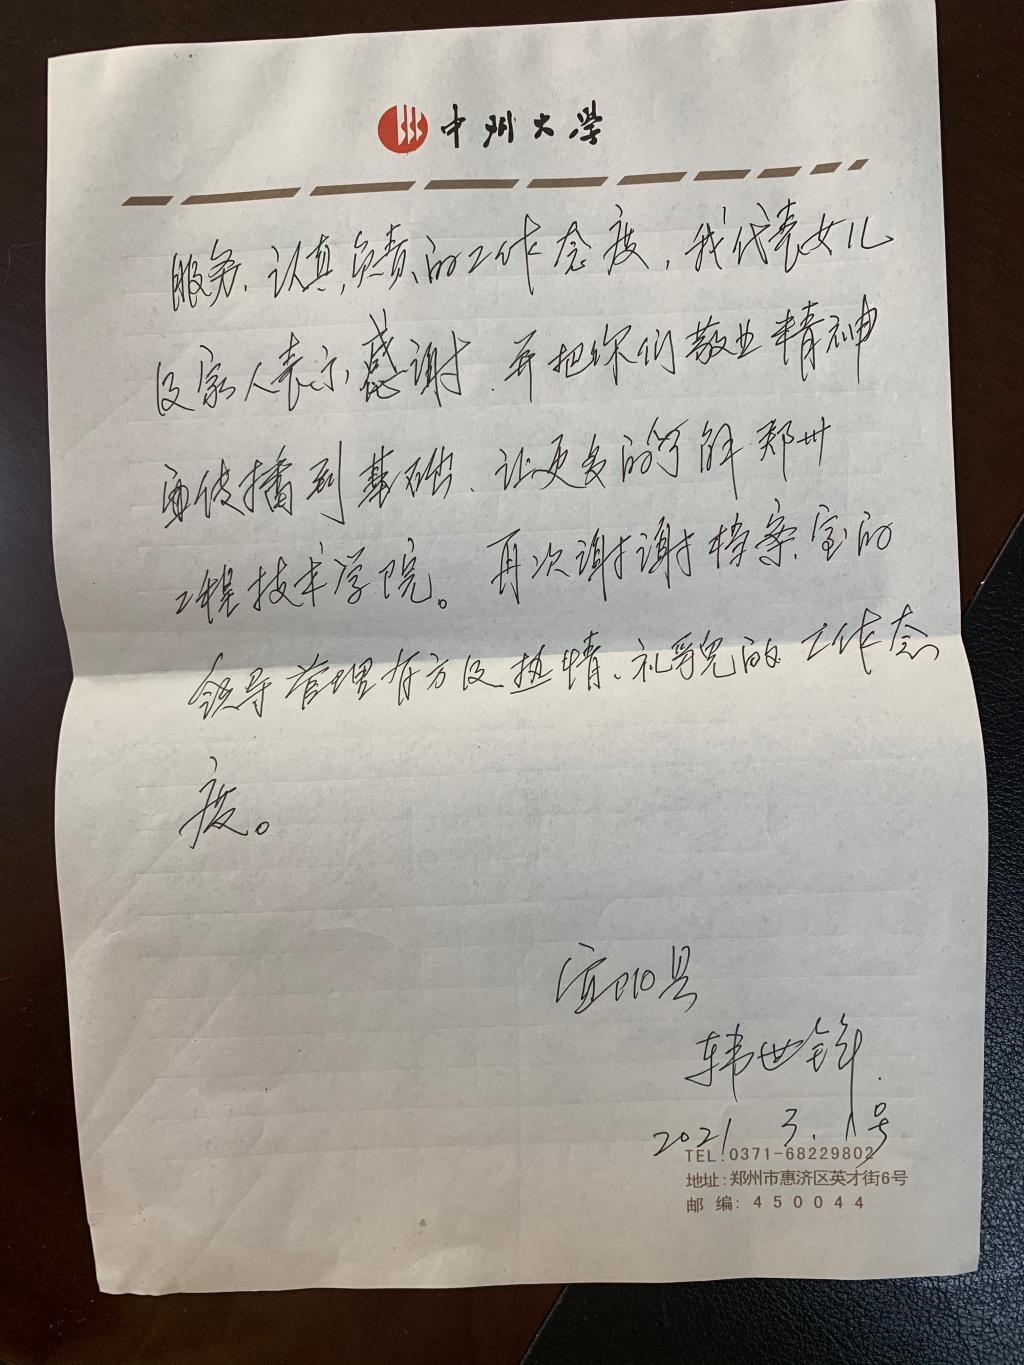 中州大学
服务、认真,负责的工作态度,我代表女儿
及家人表示感谢.并把你们敬业精神
传播到基础、让更多的 了解郑州
工程技术学院。再次谢谢档案室的
领导管理有方及热情、礼貌的工作态
度。
宜阳县
韩世锋.
2021.3.1号
TEL:0371-68229802
地址:郑州市惠济区英才街6号
邮 编:450044